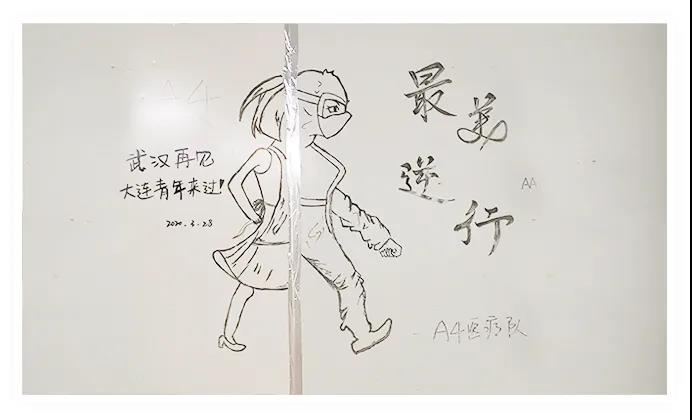 A4
武汉再见
大连青年来过!
2020.3.28
最美
逆行
AA
A4医疗队